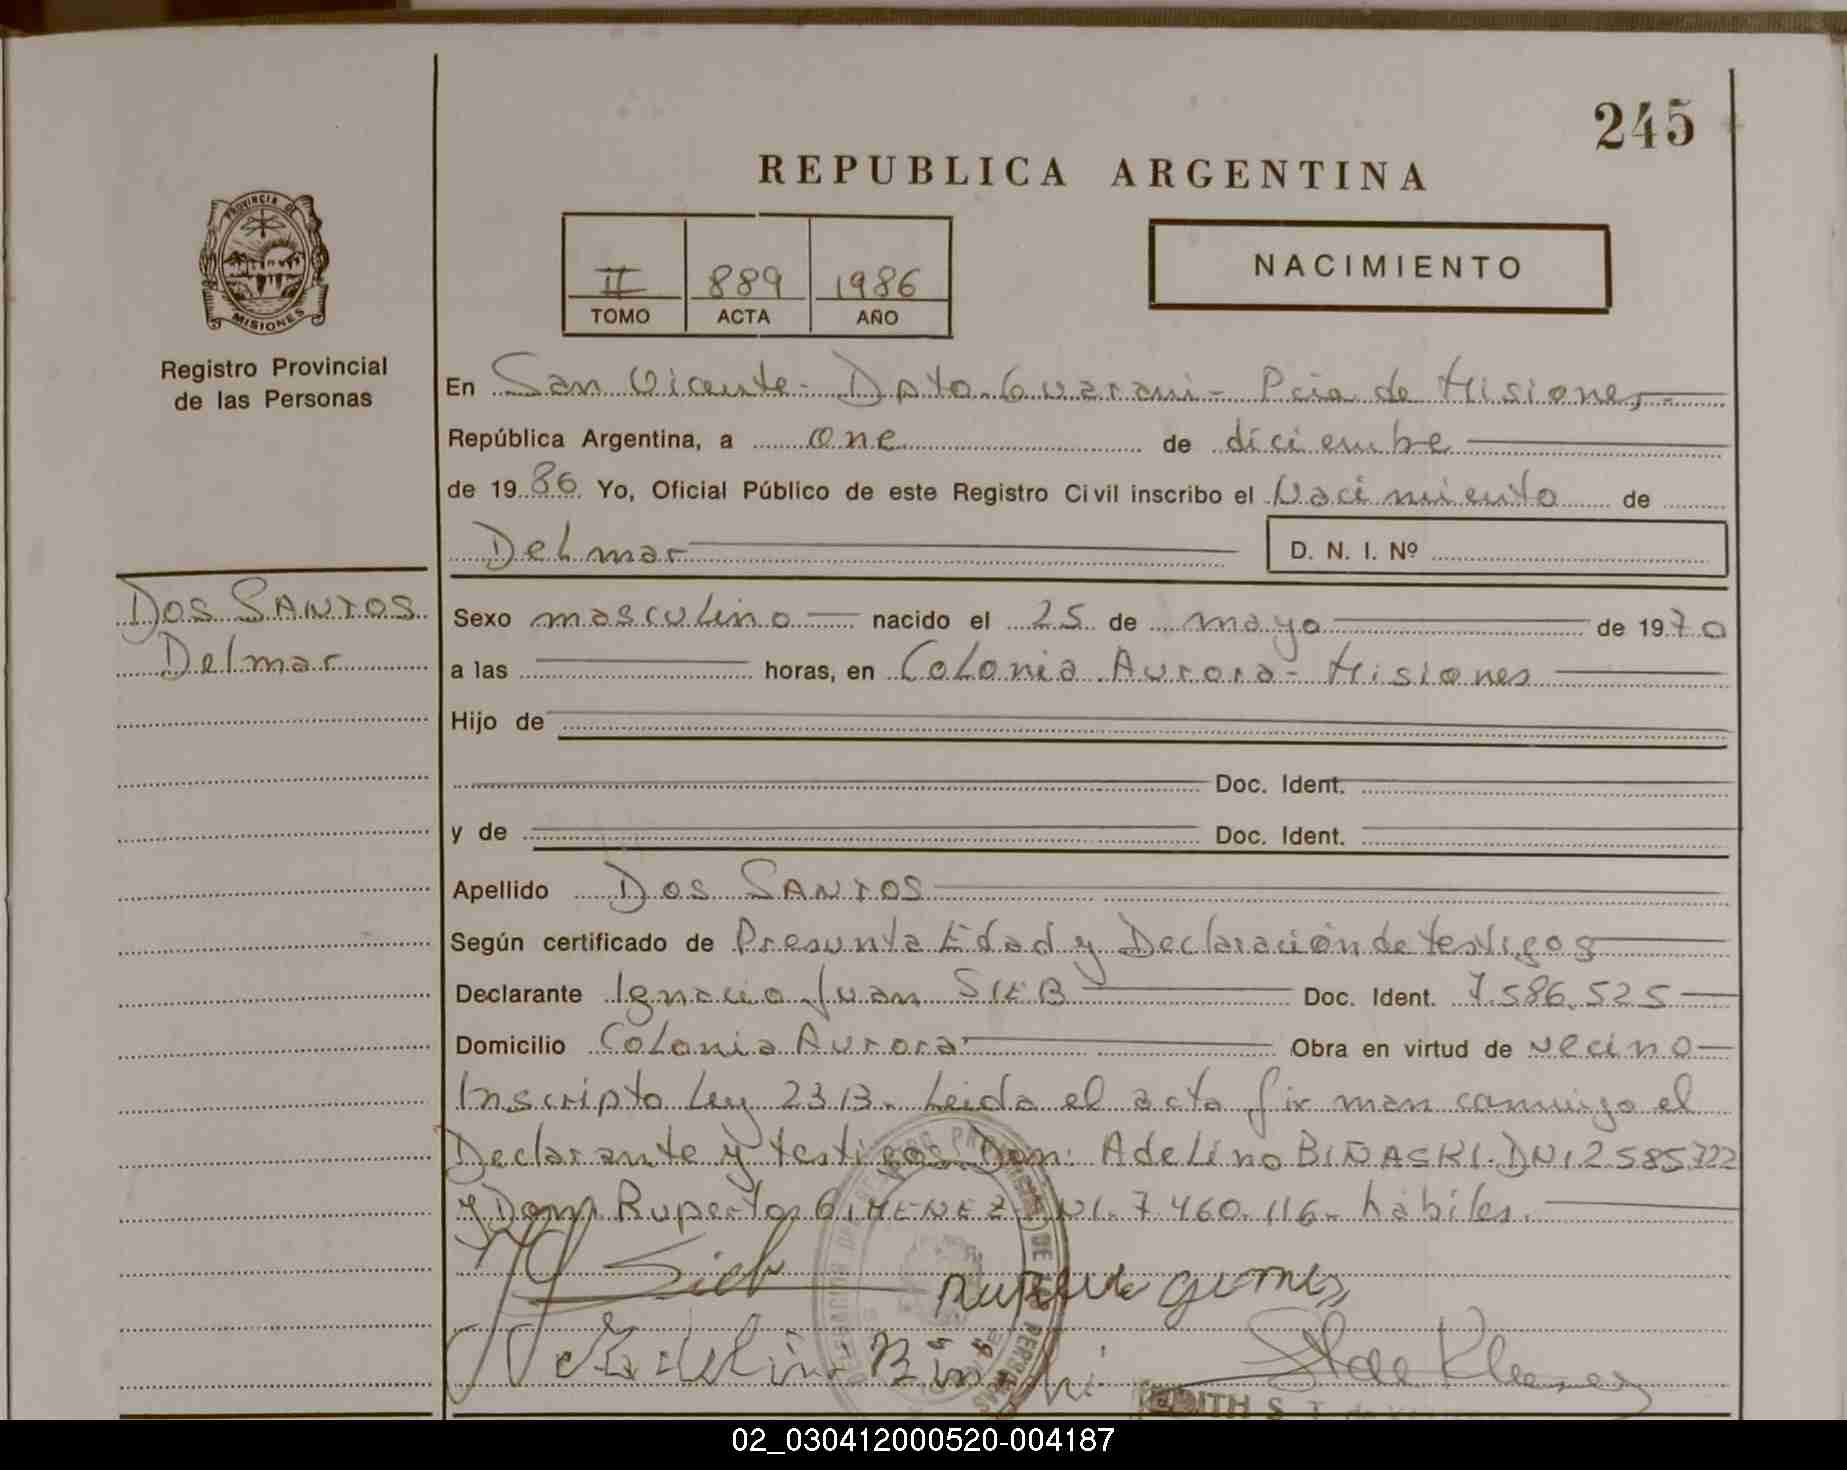 245
REPUBLICA ARGENTINA
PROVINCIA DE
MISIONES
Registro Provincial
de las Personas
II 889 1986
TOMO ACTA AÑO
NACIMIENTO
En San Vicente - Dpto. Guarani - Pcia de Misiones
República Argentina, a once de diciembre
de 1986 Yo, Oficial Público de este Registro Civil inscribo el Nacimiento de
Delmar D. N. I. Nº
DOS SANTOS
Delmar
Sexo masculino nacido el 25 de mayo de 1970
a las horas, en Colonia Aurora - Misiones
Hijo de
Doc. Ident.
y de Doc. Ident.
Apellido DOS SANTOS
Según certificado de Presunta Edad y Declaración de testigos
Declarante Ignacio Juan SIEB Doc. Ident. 7.586.525
Domicilio Colonia Aurora Obra en virtud de vecino
Inscripto Ley 23 13. Leida el acta firman conmigo el
Declarante y testigos Don: Adelino BIÑASKI. DNI 2585722
y Don Ruperto GIMENEZ NI. 7.460.116 - hábiles.
Sieb
EDITH S. T.
02_030412000520-004187